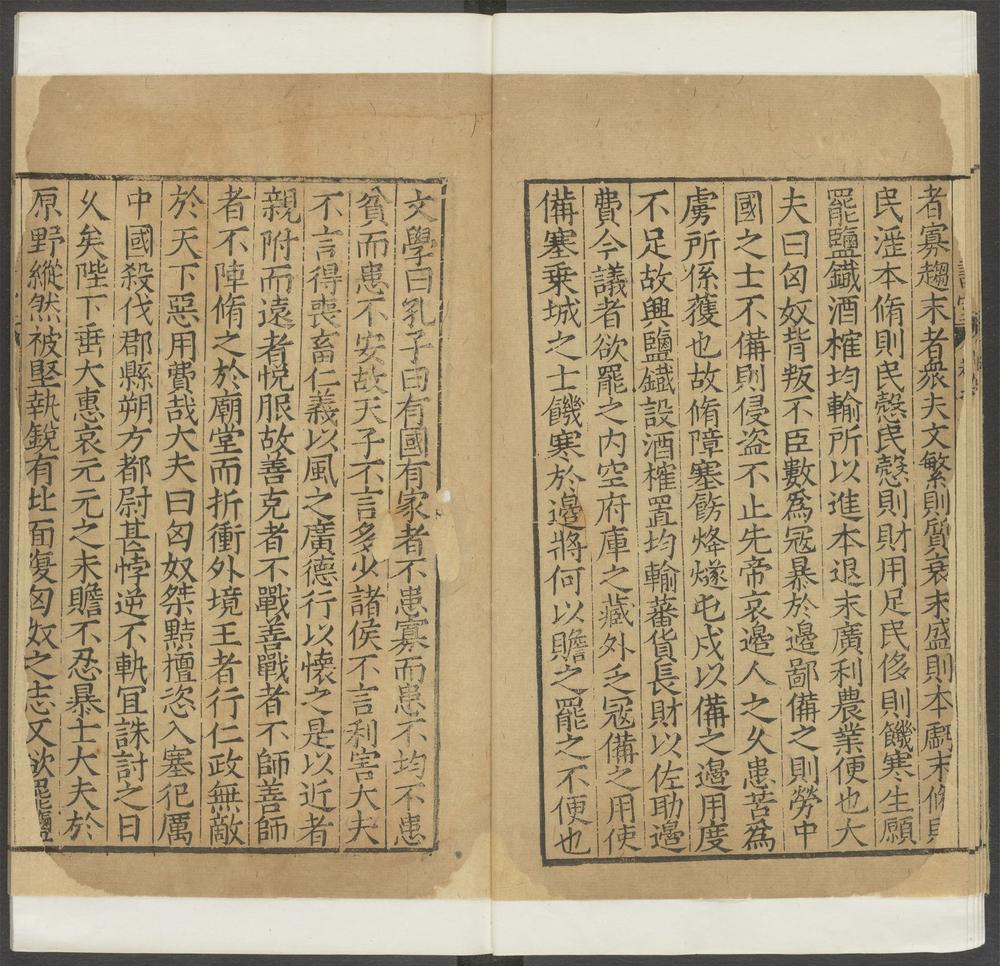 者寡趨末者衆夫文繁則質衰末盛則本虧末修則
民淫本脩則民慤民慤則財用足民侈則饑寒生願
罷鹽鐵酒榷均輸所以進本退末廣利農業便也大
夫曰匈奴背叛不臣數爲冦暴於邊鄙備之則勞中
國之士不備則侵盗不止先帝哀邊人之久患苦爲
虜所係獲也故脩障塞飭烽燧屯戍以備之邊用度
不足故興鹽鐵設酒榷置均輸蕃貨長財以佐助邊
費今議者欲罷之内空府庫之藏外乏冦備之用使
備塞乗城之士饑寒於邊將何以贍之罷之不便也
文學曰孔子曰有國有家者不患寡而患不均不患
貧而患不安故天子不言多少諸侯不言利害大夫
不言得喪畜仁義以風之廣德行以懷之是以近者
親附而遠者悦服故善克者不戰善戰者不師善師
者不陣脩之於廟堂而折衝外境王者行仁政無敵
於天下惡用費哉大夫曰匈奴桀黠擅恣入塞犯厲
中國殺伐郡縣朔方都尉甚悖逆不軌宜誅討之日
乆矣陛下垂大惠哀元元之未贍不忍暴士大夫於
原野縱然被堅執銳有北面復匈奴之志又欲罷鹽